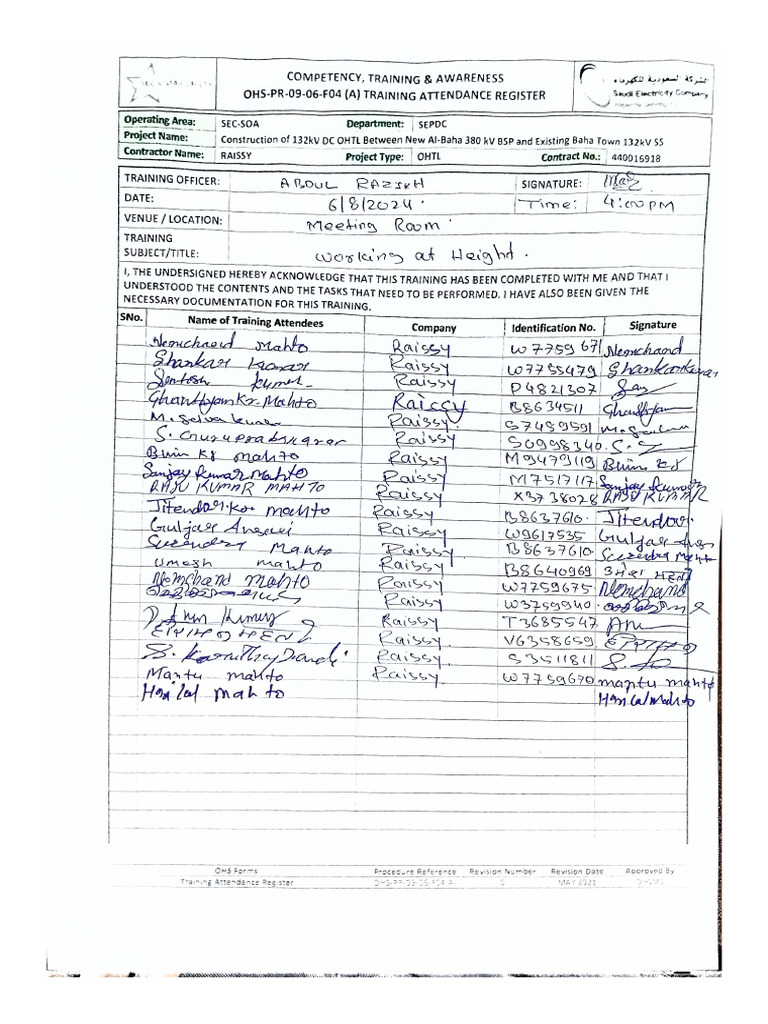 COMPETENCY, TRAINING & AWARENESS
OHS-PR-09-06-F04 (A) TRAINING ATTENDANCE REGISTER
الشركة السعودية للكهرباء
Saudi Electricity Company
Operating Area: SEC-SOA Department: SEPDC
Project Name: Construction of 132kV DC OHTL Between New Al-Baha 380 kV BSP and Existing Baha Town 132kV SS
Contractor Name: RAISSY Project Type: OHTL Contract No.: 440016918
TRAINING OFFICER: ABDUL RAZIKH SIGNATURE:
DATE: 6/8/2024 Time: 4:00PM
VENUE / LOCATION: Meeting Room
TRAINING
SUBJECT/TITLE: Working at Height.
I, THE UNDERSIGNED HEREBY ACKNOWLEDGE THAT THIS TRAINING HAS BEEN COMPLETED WITH ME AND THAT I
UNDERSTOOD THE CONTENTS AND THE TASKS THAT NEED TO BE PERFORMED. I HAVE ALSO BEEN GIVEN THE
NECESSARY DOCUMENTATION FOR THIS TRAINING.
SNo. Name of Training Attendees Company Identification No. Signature
Nemchand Mahto Raissy W7759671 Nemchand
Shankar Kumar Raissy W7755479 Shankarkumar
Santosh Kumar Raissy P4821307
Ghanshyam Kr. Mahto Raissy B8634511 Ghanshyam
M. Selvakumar Raissy S7489591
S. Raissy S0998340 S.
Bhim Kr mahto Raissy M9479119 Bhim Kr
Sanjay Kumar Mahto Raissy M7517117 Sanjay Kumar
RAJU KUMAR MAHTO Raissy X3738028 RAJU KUMAR
Jitendar Kr mahto Raissy B8637610 Jitendar
Guljar Ansari Raissy W9617535 Guljar
Surendra Mahto Raissy B8637610 Surendra Mahto
Umesh mahto Raissy B8640969
Nemchand Mahto Raissy W7759675 Nemchand
Raissy W3759940
Kumar Raissy T3685547
Raissy V6358659
S. Raissy S3511811 S.
Mantu mahto Raissy W7759670 mantu mahto
Hari Lal Mahto Hari Lal Mahto
OHS Forms Procedure Reference Revision Number Revision Date Approved By
Training Attendance Register OHS-PR-09-06-F04(A) 0 MAY 2021